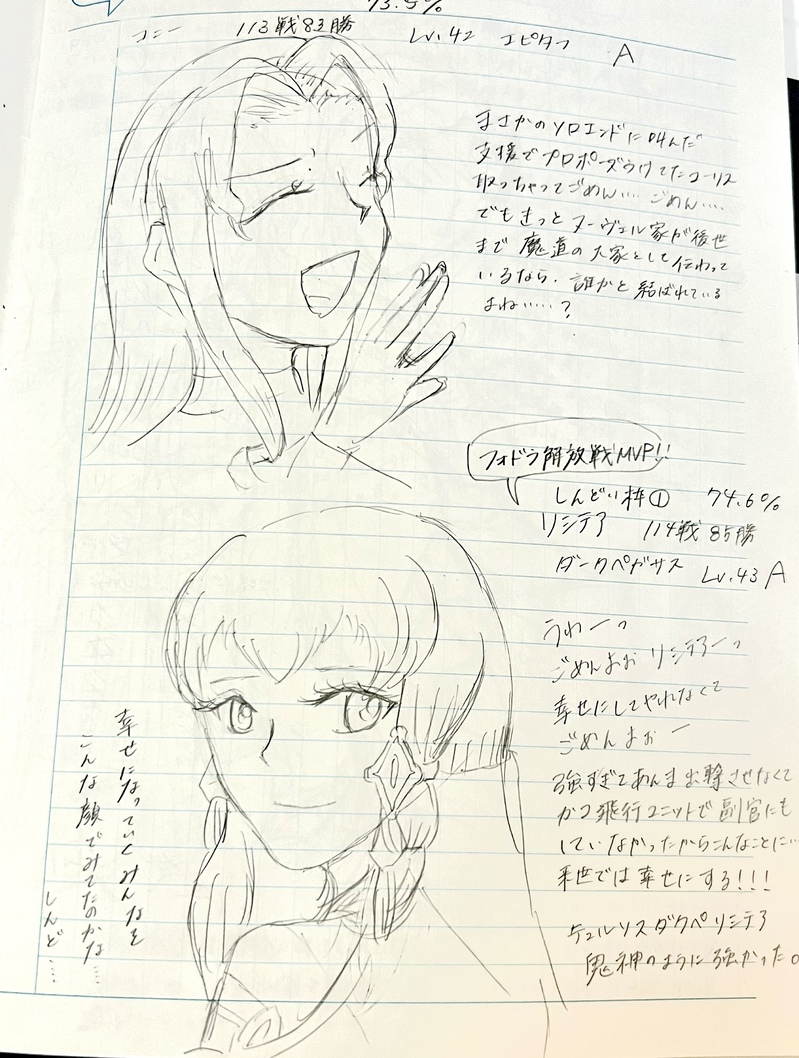 73.5%
コニー 113戦83勝 Lv.42 エピタフ A
まさかのソロエンドに叫んだ
支援でプロポーズうけてたコーリス
取っちゃってごめん…… ごめん……
でもきっとヌーヴェル家が後世
まで魔道の大家として伝わって
いるなら、誰かと結ばれている
よね……?
フォドラ解放戦MVP!!
しんどい枠① 74.6%
リシテア 114戦85勝
ダークペガサス Lv.43 A
うわーっ
ごめんよぉ リシテアーっ
幸せにしてやれなくて
ごめんよぉー
強すぎてあんま出撃させなくて
かつ飛行ユニットで副官にも
していなかったからこんなことに…
来世では幸せにする!!!
テュルソスダクペリシテア
鬼神のように強かった。
幸せになっていくみんなを
こんな顔でみてたのかな……
しんど……